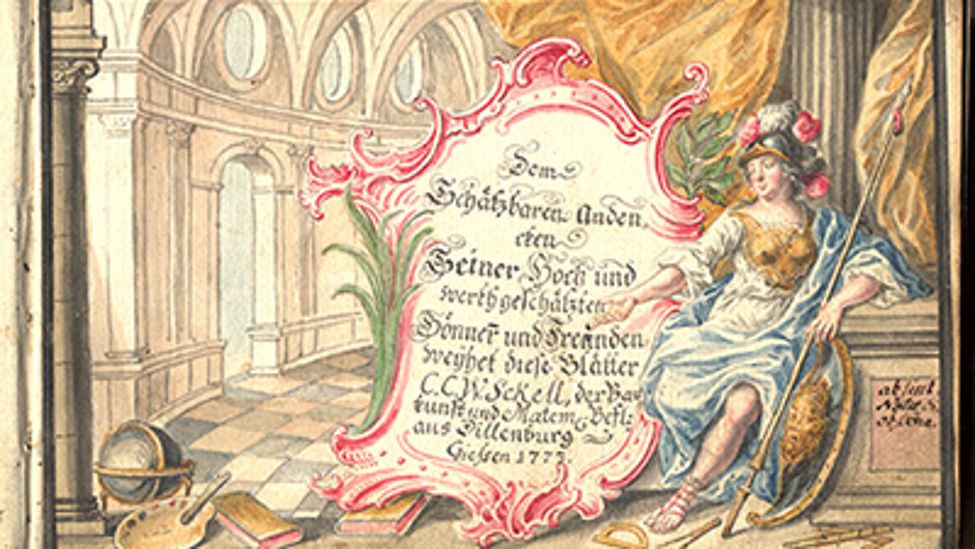 Dem
Schätzbaren Anden
cken
Seiner Hoch und
werth geschätzten
Gönner und Freunden
weyhet diese Blätter
C.C.W. Sckell, der Bau
kunst und Matem. Befls
aus Dillenburg
Giessen 1773.